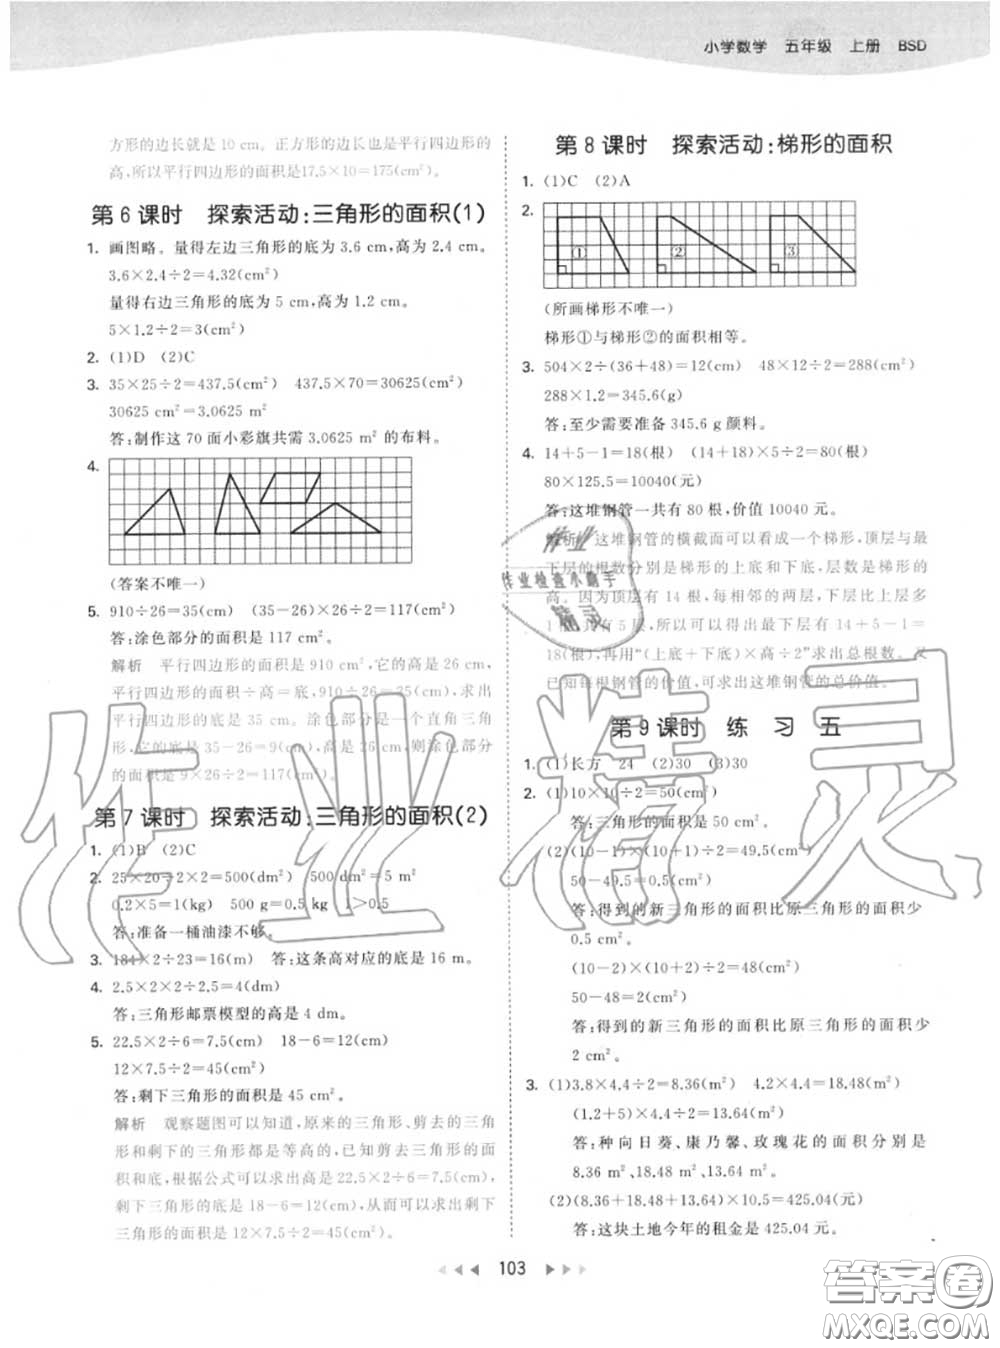 小学数学 五年级 上册 BSD
方形的边长就是 10 cm。正方形的边长也是平行四边形的
高,所以平行四边形的面积是17.5×10=175(cm²)
第 6 课时 探索活动:三角形的面积(1)
1. 画图略。量得左边三角形的底为 3.6 cm,高为 2.4 cm。
3.6×2.4÷2=4.32(cm²)
量得右边三角形的底为 5 cm,高为 1.2 cm。
5×1.2÷2=3(cm²)
2. (1)D (2)C
3. 35×25÷2=437.5(cm²) 437.5×70=30625(cm²)
30625 cm²=3.0625 m²
答:制作这 70 面小彩旗共需 3.0625 m² 的布料。
4.
(答案不唯一)
5. 910÷26=35(cm) (35-26)×26÷2=117(cm²)
答:涂色部分的面积是 117 cm²。
解析 平行四边形的面积是 910 cm²,它的高是 26 cm,
平行四边形的面积÷高=底,910÷26=35(cm),求出
平行四边形的底是 35 cm。涂色部分是一个直角三角
形,它的底是 35-26=9(cm),高是 26 cm,则涂色部分
的面积是 9×26÷2=117(cm²)。
第 7 课时 探索活动:三角形的面积(2)
1. (1)B (2)C
2. 25×20÷2×2=500(dm²) 500 dm²=5 m²
0.2×5=1(kg) 500 g=0.5 kg 1>0.5
答:准备一桶油漆不够。
3. 184×2÷23=16(m) 答:这条高对应的底是 16 m。
4. 2.5×2×2÷2.5=4(dm)
答:三角形邮票模型的高是 4 dm。
5. 22.5×2÷6=7.5(cm) 18-6=12(cm)
12×7.5÷2=45(cm²)
答:剩下三角形的面积是 45 cm²。
解析 观察题图可以知道,原来的三角形、剪去的三角
形和剩下的三角形都是等高的,已知剪去三角形的面
积和底,根据公式可以求出高是 22.5×2÷6=7.5(cm),
剩下三角形的底是 18-6=12(cm),从而可以求出剩下
三角形的面积是 12×7.5÷2=45(cm²)。
第 8 课时 探索活动:梯形的面积
1. (1)C (2)A
2.
① ② ③
(所画梯形不唯一)
梯形①与梯形②的面积相等。
3. 504×2÷(36+48)=12(cm) 48×12÷2=288(cm²)
288×1.2=345.6(g)
答:至少需要准备 345.6 g 颜料。
4. 14+5-1=18(根) (14+18)×5÷2=80(根)
80×125.5=10040(元)
答:这堆钢管一共有 80 根,价值 10040 元。
解析 这堆钢管的横截面可以看成一个梯形,顶层与最
下层的根数分别是梯形的上底和下底,层数是梯形的
高。因为顶层有 14 根,每相邻的两层,下层比上层多
1根,有5层,所以可以得出最下层有 14+5-1=
18(根),再用“(上底+下底)×高÷2”求出总根数。又
已知每根钢管的价值,可求出这堆钢管的总价值。
第 9 课时 练 习 五
1. (1)长方 24 (2)30 (3)30
2. (1)10×10÷2=50(cm²)
答:三角形的面积是 50 cm²。
(2)(10-1)×(10+1)÷2=49.5(cm²)
50-49.5=0.5(cm²)
答:得到的新三角形的面积比原三角形的面积少
0.5 cm²。
(10-2)×(10+2)÷2=48(cm²)
50-48=2(cm²)
答:得到的新三角形的面积比原三角形的面积少
2 cm²。
3. (1)3.8×4.4÷2=8.36(m²) 4.2×4.4=18.48(m²)
(1.2+5)×4.4÷2=13.64(m²)
答:种向日葵、康乃馨、玫瑰花的面积分别是
8.36 m²、18.48 m²、13.64 m²。
(2)(8.36+18.48+13.64)×10.5=425.04(元)
答:这块土地今年的租金是 425.04 元。
103
作业
作业检查小助手
精灵
作业精灵
答案圈
MXQE.COM